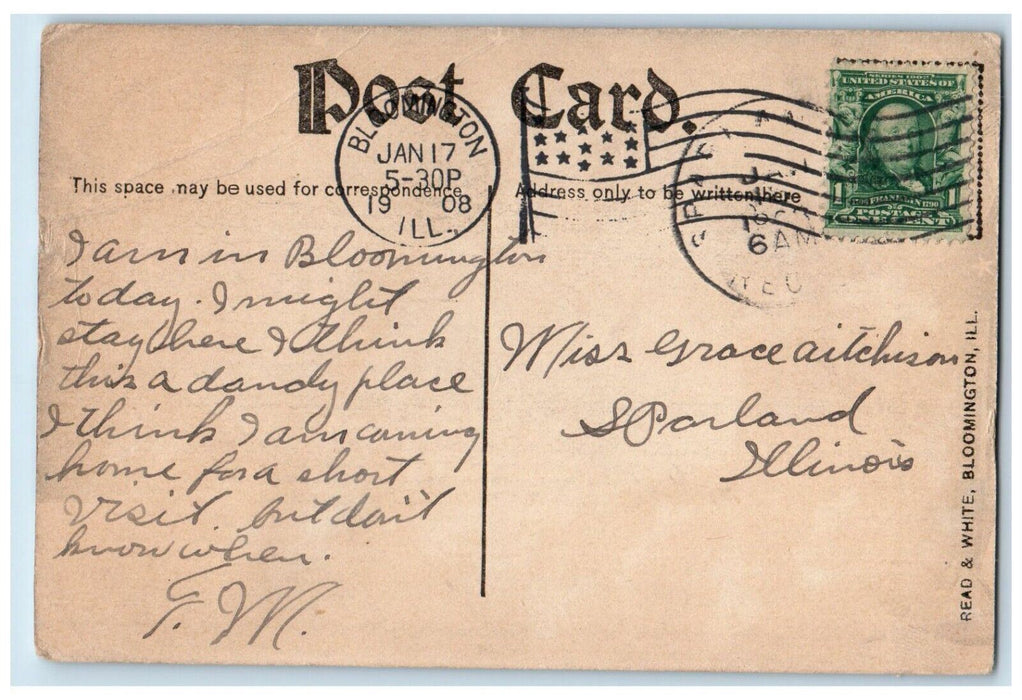 Post Card.
BLOOMINGTON
JAN 17
5-30P
19 08
ILL.
6 AM
REC
SERIES 1902
UNITED STATES OF
AMERICA
1 1
FRANKLIN
POSTAGE
ONE CENT
This space may be used for correspondence
Address only to be written here
I am in Bloomington
today. I might
stay here I think
this a dandy place
I think I am coming
home for a short
visit. but don't
know when.
F. M.
Miss Grace Aitchison
SParland
Illinois
READ & WHITE, BLOOMINGTON, ILL.